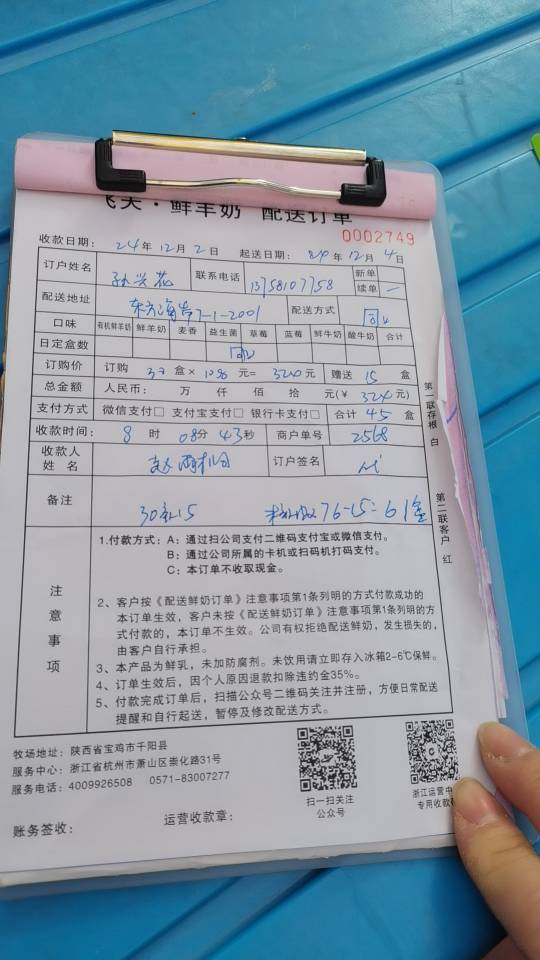 飞天·鲜羊奶 配送订单
0002749
收款日期: 24年12月2日 起送日期: 24年12月4日
订户姓名 孙兴花 联系电话 13758107758 新单
续单 一
配送地址 东方海岸7-1-2001 配送方式 同以
口味 有机鲜羊奶 鲜羊奶 麦香 益生菌 草莓 蓝莓 鲜牛奶 酸牛奶 合计
日定盒数 同以
订购价 订购 盒× 元= 元 赠送 15 盒
总金额 人民币: 万 仟 佰 拾 元(¥ 324元
支付方式 微信支付□ 支付宝支付□ 银行卡支付□ 合计 45 盒
收款时间: 8时08分43秒 商户单号 2568
收款人姓名 订户签名
备注 30送15 76-15=61盒
第一联存根 白
第二联客户 红
注意事项
1.付款方式: A: 通过扫公司支付二维码支付宝或微信支付。
B: 通过公司所属的卡机或扫码机打码支付。
C: 本订单不收取现金。
2、客户按《配送鲜奶订单》注意事项第1条列明的方式付款成功的
本订单生效,客户未按《配送鲜奶订单》注意事项第1条列明的方
式付款的,本订单不生效。公司有权拒绝配送鲜奶,发生损失的,
由客户自行承担。
3、本产品为鲜乳,未加防腐剂。未饮用请立即存入冰箱2-6℃保鲜。
4、订单生效后,因个人原因退款扣除违约金35%。
5、付款完成订单后,扫描公众号二维码关注并注册,方便日常配送
提醒和自行起送,暂停及修改配送方式。
牧场地址: 陕西省宝鸡市千阳县
服务中心: 浙江省杭州市萧山区崇化路31号
服务电话: 4009926508 0571-83007277
扫一扫关注
公众号
浙江运营中
专用收款
账务签收: 运营收款章: